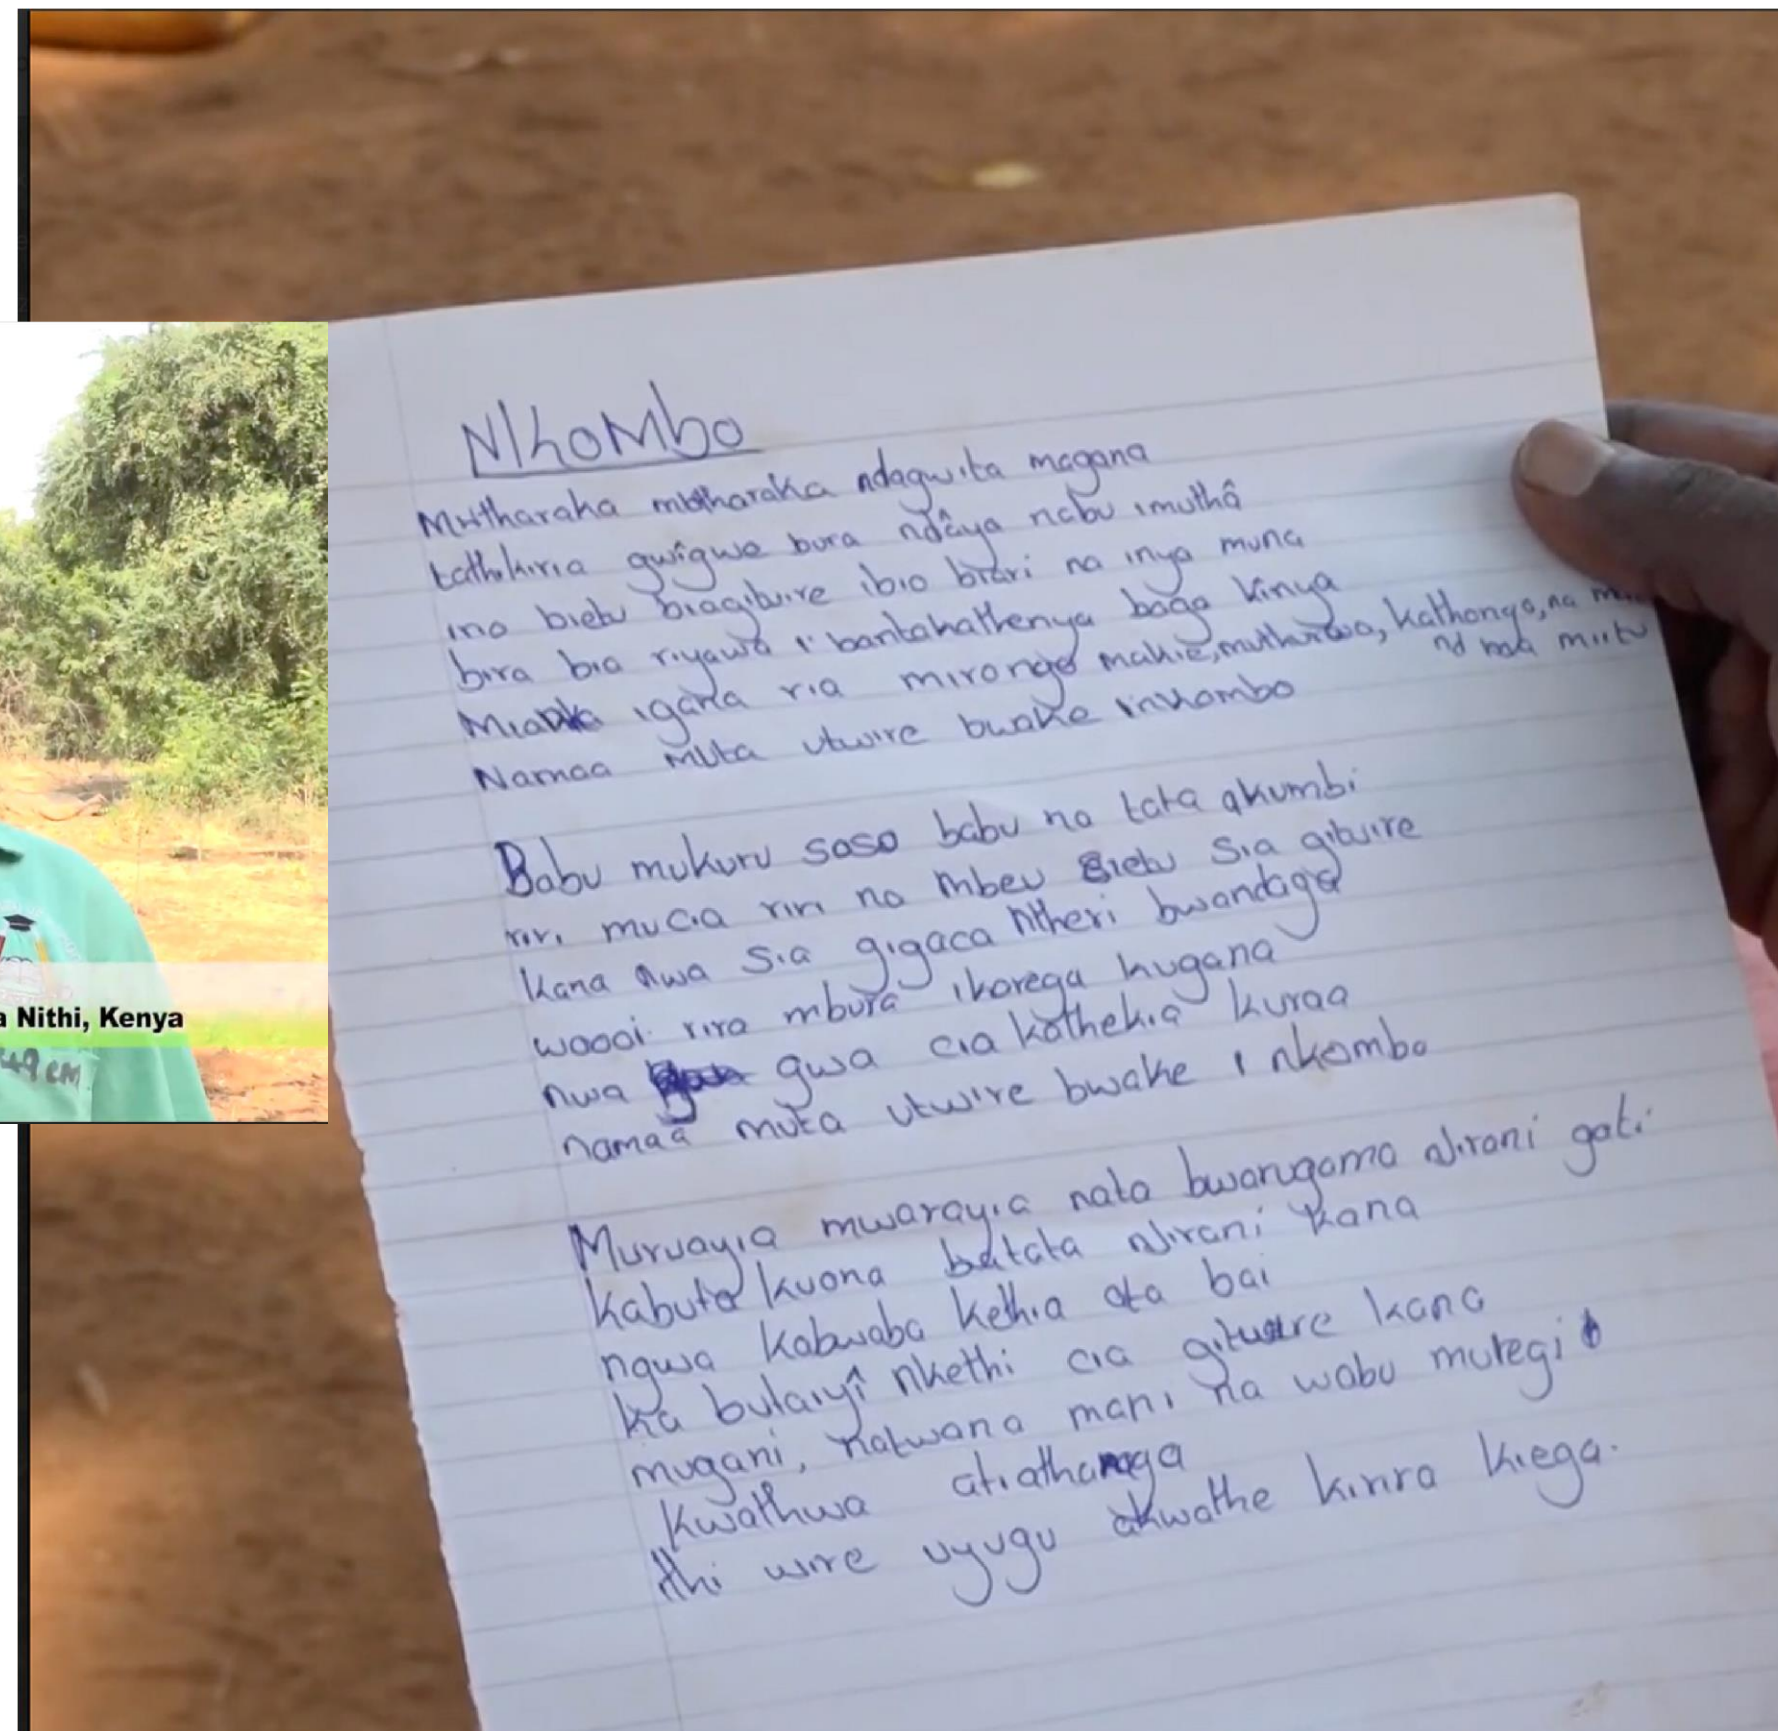 Nkombo
Mutharaka mutharaka ndagwita magana
tathikiria gwîgwe bura ndâya nabu imuthâ
ino bietu biagituire ibio biari na inya muna
bira bia riyawa i bantakathenya baga kinya
Mianka igana ria mirongo makie, muthurwa, kathongo, na
nd maa miitu
Namaa muta utwire bwake inkombo
Babu mukuru soso babu na tata akumbi
riri mucia riri na mbeu sietu sia gituire
kana nwa sia gigaca ntheri bwandaga
woooi rira mbura ikorega kugana
nwa gwa cia kathekia kuraa
namaa muta utwire bwake i nkombo
Muruayia mwarayia nata bwarugama Nirani gati
kabuta kuona batata Nirani kana
ngwa kabwaba kethia ata bai
ka butaiyî nkethi cia gituire kana
mugani, natwana mani na wabu mutegi
kwathwa atiathanga
Nthi wire uyugu akwathe kirira kiega.
a Nithi, Kenya
49 cm